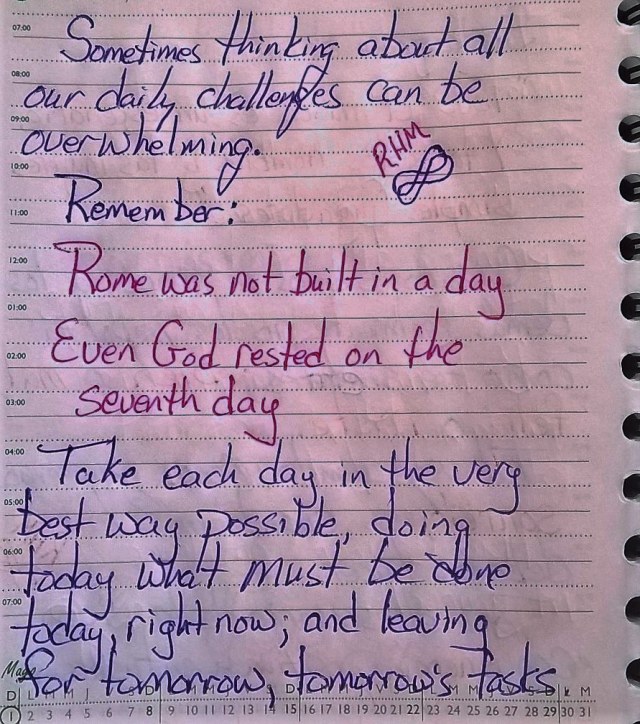 07:00
Sometimes thinking about all
08:00
our daily challenges can be
09:00
overwhelming.
RHM
10:00
Remember:
11:00
12:00
Rome was not built in a day
01:00
Even God rested on the
02:00
seventh day
03:00
04:00
Take each day in the very
05:00
best way possible, doing
06:00
today what must be done
07:00
today, right now; and leaving
for tomorrow, tomorrow's tasks
1 2 3 4 5 6 7 8 9 10 11 12 13 14 15 16 17 18 19 20 21 22 23 24 25 26 27 28 29 30 31